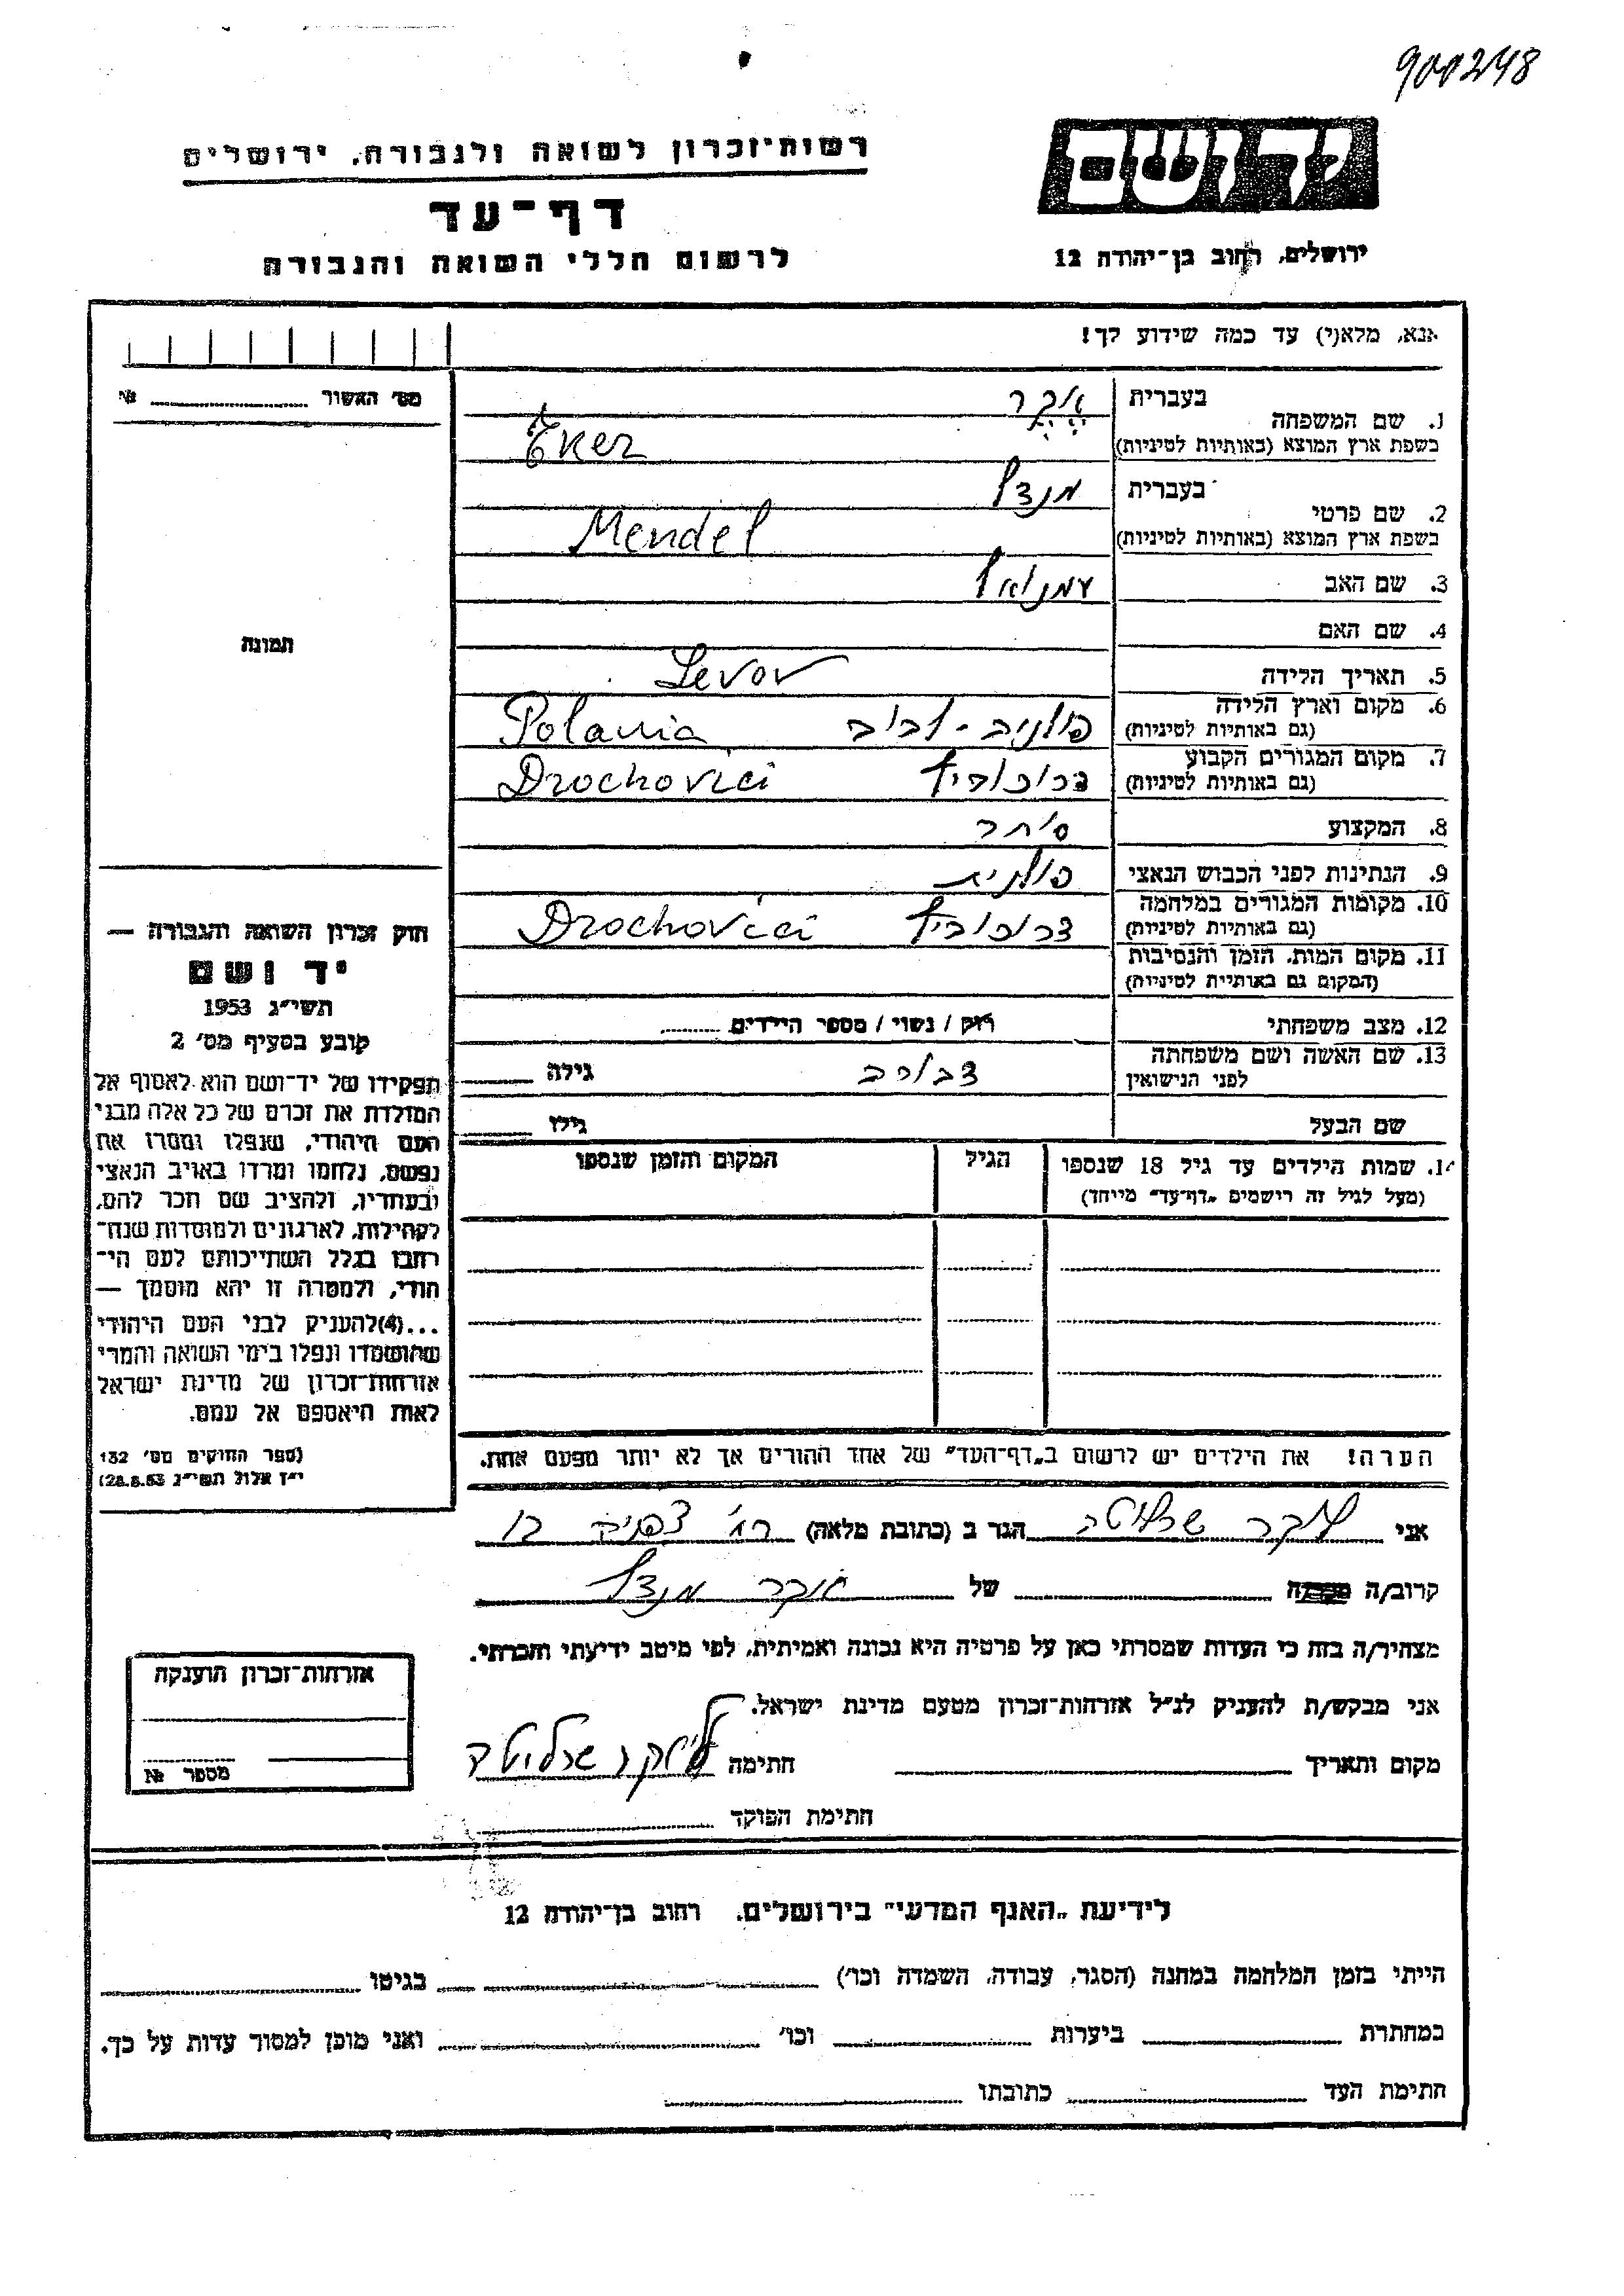 900248
רשות־זכרון לשואה ולגבורה, ירושלים
דף־עד
לרשום חללי השואה והגבורה
יד ושם
ירושלים, רחוב בן־יהודה 12
אנא, מלא(י) עד כמה שידוע לך!
מס' האשור №
תמונה
חוק זכרון השואה והגבורה —
יד ושם
תשי״ג 1953
קובע בסעיף מס' 2
תפקידו של יד־ושם הוא לאסוף אל
המולדת את זכרם של כל אלה מבני
העם היהודי, שנפלו ומסרו את
נפשם, נלחמו ומרדו באויב הנאצי
ובעוזריו, ולהציב שם וזכר להם,
לקהילות, לארגונים ולמוסדות שנח־
רבו בגלל השתייכותם לעם הי־
הודי, ולמטרה זו יהא מוסמך —
...(4) להעניק לבני העם היהודי
שהושמדו ונפלו בימי השואה והמרי
אזרחות־זכרון של מדינת ישראל
לאות היאספם אל עמם.
(ספר החוקים מס' 132
י״ז אלול תשי״ג 28.8.53)
1. שם המשפחה
בעברית אקר
בשפת ארץ המוצא (באותיות לטיניות) Eker
2. שם פרטי
בעברית מנדל
בשפת ארץ המוצא (באותיות לטיניות) Mendel
3. שם האב עמנואל
4. שם האם
5. תאריך הלידה Levov
6. מקום וארץ הלידה
(גם באותיות לטיניות) פולניה - לבוב Polania
7. מקום המגורים הקבוע
(גם באותיות לטיניות) דרוכוביץ Drochovici
8. המקצוע סוחר
9. הנתינות לפני הכבוש הנאצי פולנית
10. מקומות המגורים במלחמה
(גם באותיות לטיניות) דרוכוביץ Drochovici
11. מקום המות, הזמן והנסיבות
(המקום גם באותיות לטיניות)
12. מצב משפחתי רוק / נשוי / מספר הילדים
13. שם האשה ושם משפחתה
לפני הנישואין דבורה גילה
שם הבעל גילו
14. שמות הילדים עד גיל 18 שנספו
(מעל לגיל זה רישמים „דף־עד״ מייחד)
הגיל
המקום והזמן שנספו
הערה! את הילדים יש לרשום ב„דף־העד״ של אחד ההורים אך לא יותר מפעם אחת.
אני אקר הגר ב (כתובת מלאה) רח'
קרוב/ה של אקר מנדל
מצהיר/ה בזה כי העדות שמסרתי כאן על פרטיה היא נכונה ואמיתית, לפי מיטב ידיעתי והכרתי.
אני מבקש/ת להעניק לנ״ל אזרחות־זכרון מטעם מדינת ישראל.
מקום ותאריך חתימה
חתימת הפוקד
אזרחות־זכרון הוענקה
מספר №
לידיעת „האגף המדעי״ בירושלים, רחוב בן־יהודה 12
הייתי בזמן המלחמה במחנה (הסגר, עבודה, השמדה וכו') בגיטו
במחתרת ביערות וכו' ואני מוכן למסור עדות על כך.
חתימת העד כתובתו